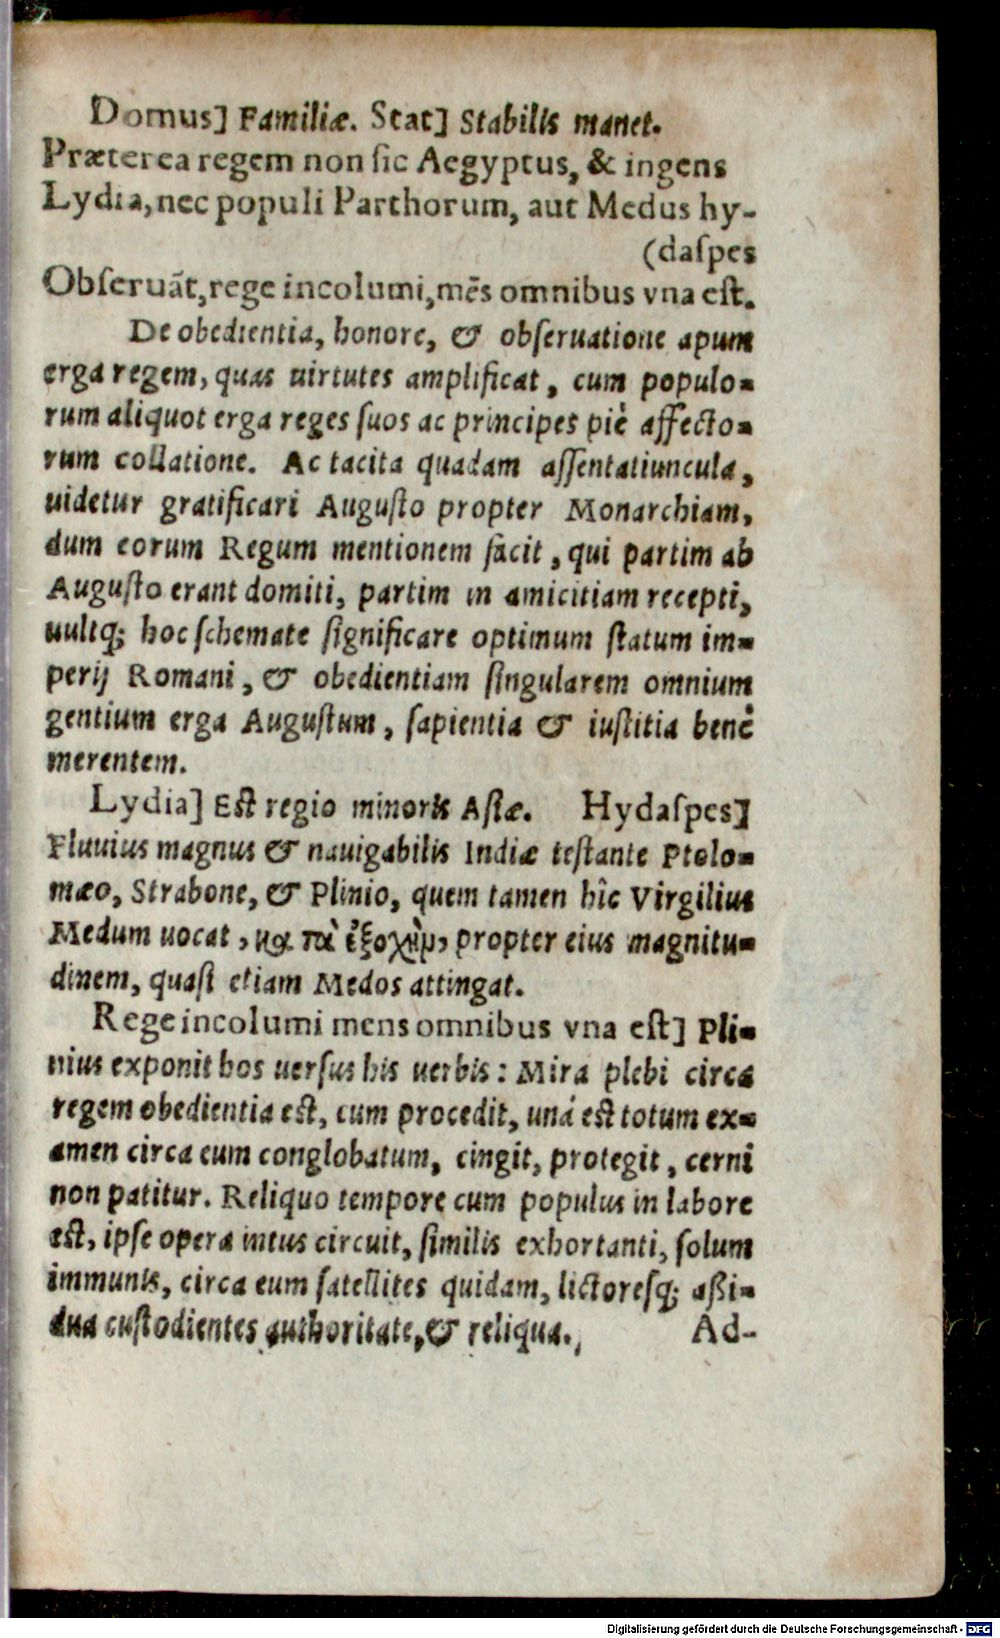 Domus] Familiæ. Stat] Stabilis manet.
Præterea regem non ſic Aegyptus, & ingens
Lydia, nec populi Parthorum, aut Medus hy-
(daſpes
Obſeruãt, rege incolumi, mẽs omnibus vna eſt.
De obedientia, honore, & obſeruatione apum
erga regem, quas uirtutes amplificat, cum populo-
rum aliquot erga reges ſuos ac principes piè affecto-
rum collatione. Ac tacita quadam aſſentatiuncula,
uidetur gratificari Auguſto propter Monarchiam,
dum eorum Regum mentionem facit, qui partim ab
Auguſto erant domiti, partim in amicitiam recepti,
uultq́; hoc ſchemate ſignificare optimum ſtatum im-
perij Romani, & obedientiam ſingularem omnium
gentium erga Auguſtum, ſapientia & iuſtitia benè
merentem.
Lydia] Eſt regio minoris Aſiæ. Hydaſpes]
Fluuius magnus & nauigabilis Indiæ teſtante Ptolo-
mæo, Strabone, & Plinio, quem tamen hîc Virgilius
Medum uocat, καὶ τὰ ἐξοχὴν, propter eius magnitu-
dinem, quaſi etiam Medos attingat.
Rege incolumi mens omnibus vna eſt] Pli-
nius exponit hos uerſus his uerbis: Mira plebi circa
regem obedientia eſt, cum procedit, unà eſt totum ex-
amen circa eum conglobatum, cingit, protegit, cerni
non patitur. Reliquo tempore cum populus in labore
eſt, ipſe opera intus circuit, ſimilis exhortanti, ſolum
immunis, circa eum ſatellites quidam, lictoresq́; aßi-
dua cuſtodientes authoritate, & reliqua.
Ad-
Digitalisierung gefördert durch die Deutsche Forschungsgemeinschaft - DFG